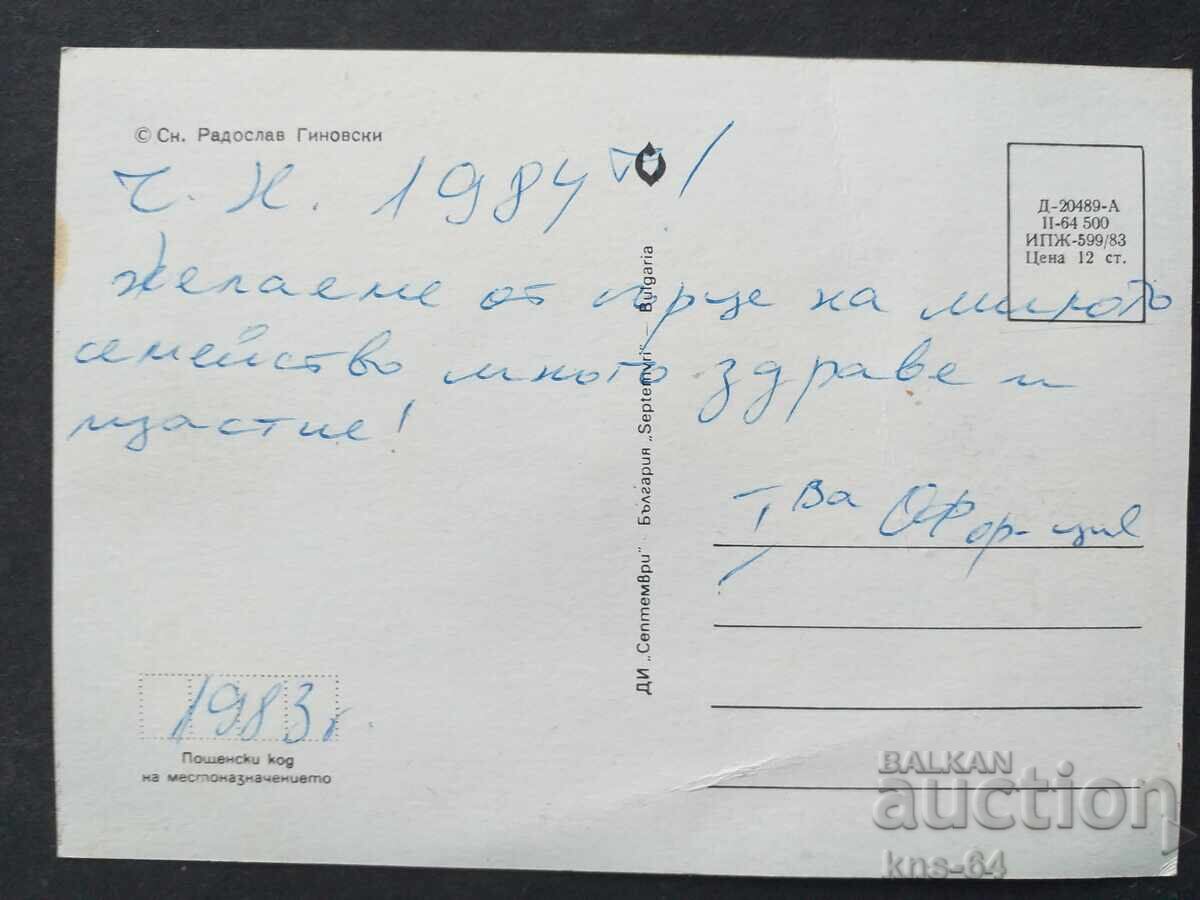 © Сн. Радослав Гиновски
Ч. Н. 1984 та!
Желаеме от сърце на милото
семейство много здраве и
щастие!
Д-20489-А
II-64 500
ИПЖ-599/83
Цена 12 ст.
ДИ „Септември" · България „Septemvri" – Bulgaria
1983г.
Пощенски код
на местоназначението
BALKAN
auction
kns-64